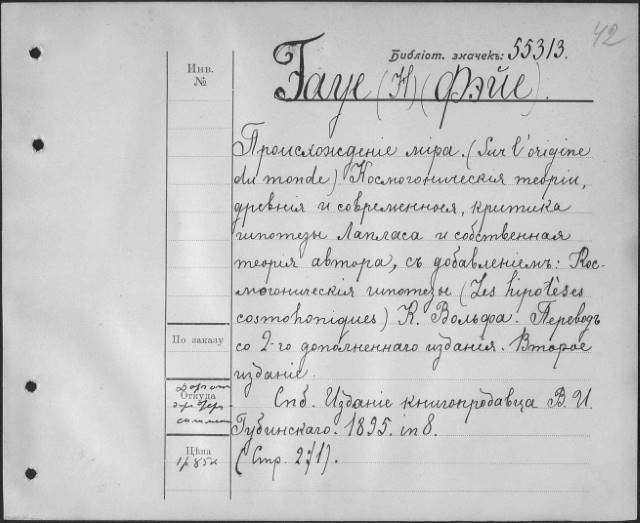 42
Библіот. значекъ: 55313.
Инв.
№
Faye (H) (Фэйе).
Происхожденіе міра. (Sur l'origine
du monde) Космогоническія теоріи,
древнія и современныя, критика
гипотезы Лапласа и собственная
теорія автора, съ добавленіемъ: Кос-
могоническія гипотезы (Les hipotèses
cosmohoniques) К. Вольфа. Переводъ
со 2-го дополненнаго изданія. Второе
изданіе.
Спб. Изданіе книгопродавца В. И.
Губинскаго. 1895. in 8.
(Стр. 271).
По заказу
Откуда
Цѣна
1р 85к